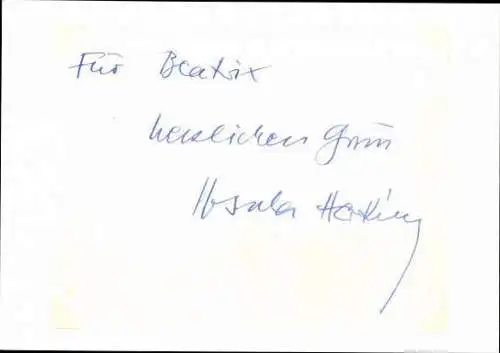 Für Beatrix
herzlichen Gruß
Ursula Herking